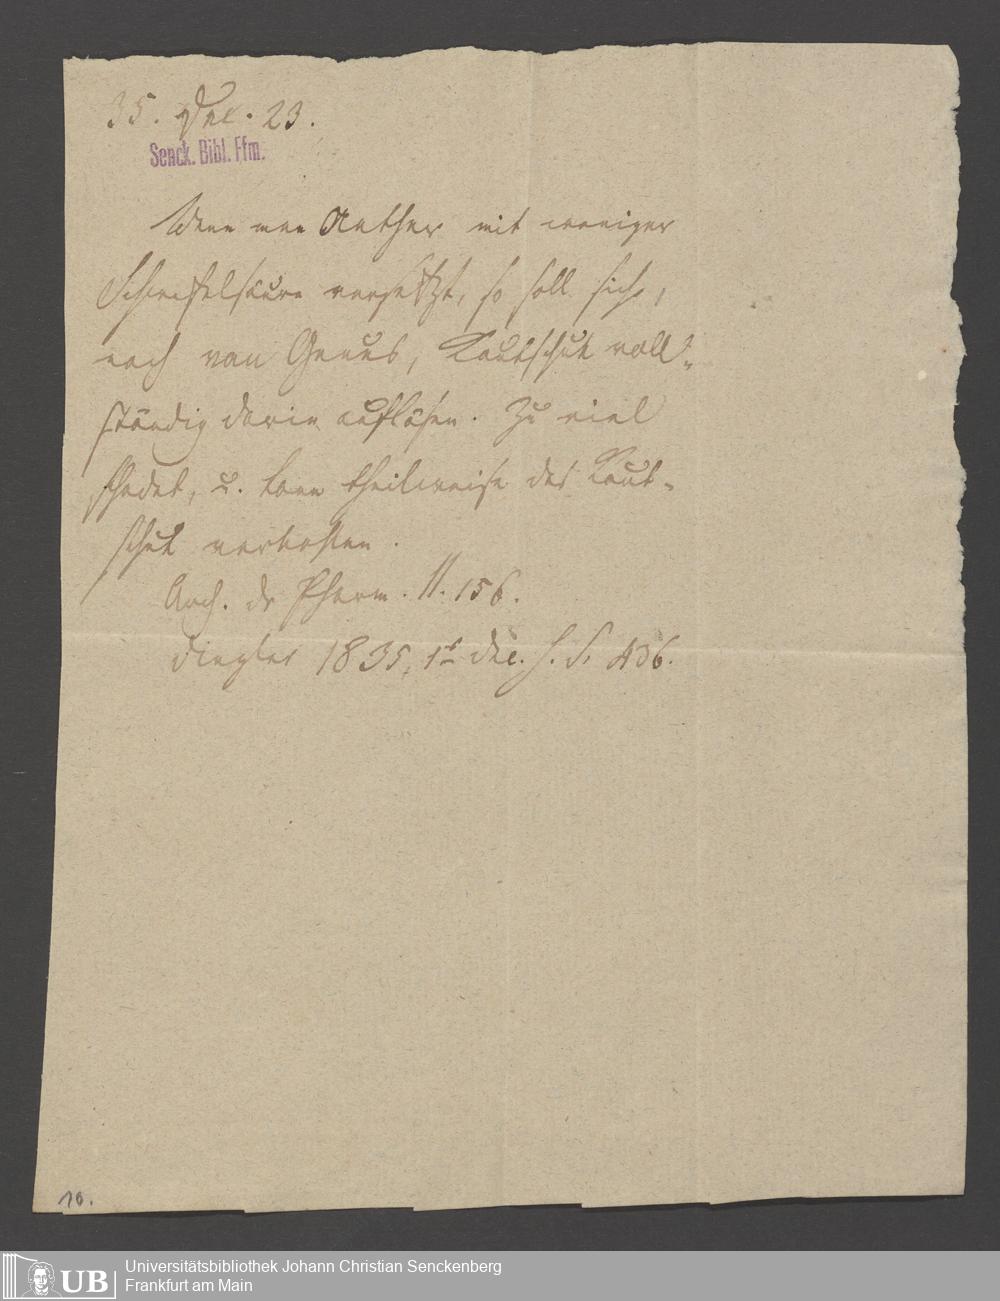 35. Dec. 23.
Senck. Bibl. Ffm.
Wenn man Aether mit weniger
Schwefelsäure versetzt, so soll sich,
nach van Geuns, Kautschuk voll-
ständig darin auflösen. Zu viel
schadet, u. kann theilweise das Kaut-
schuk verkohlen.
Arch. d. Pharm. II. 156.
Dingler 1835, 1t Dec. H. S. 436.
10.
UB
Universitätsbibliothek Johann Christian Senckenberg
Frankfurt am Main